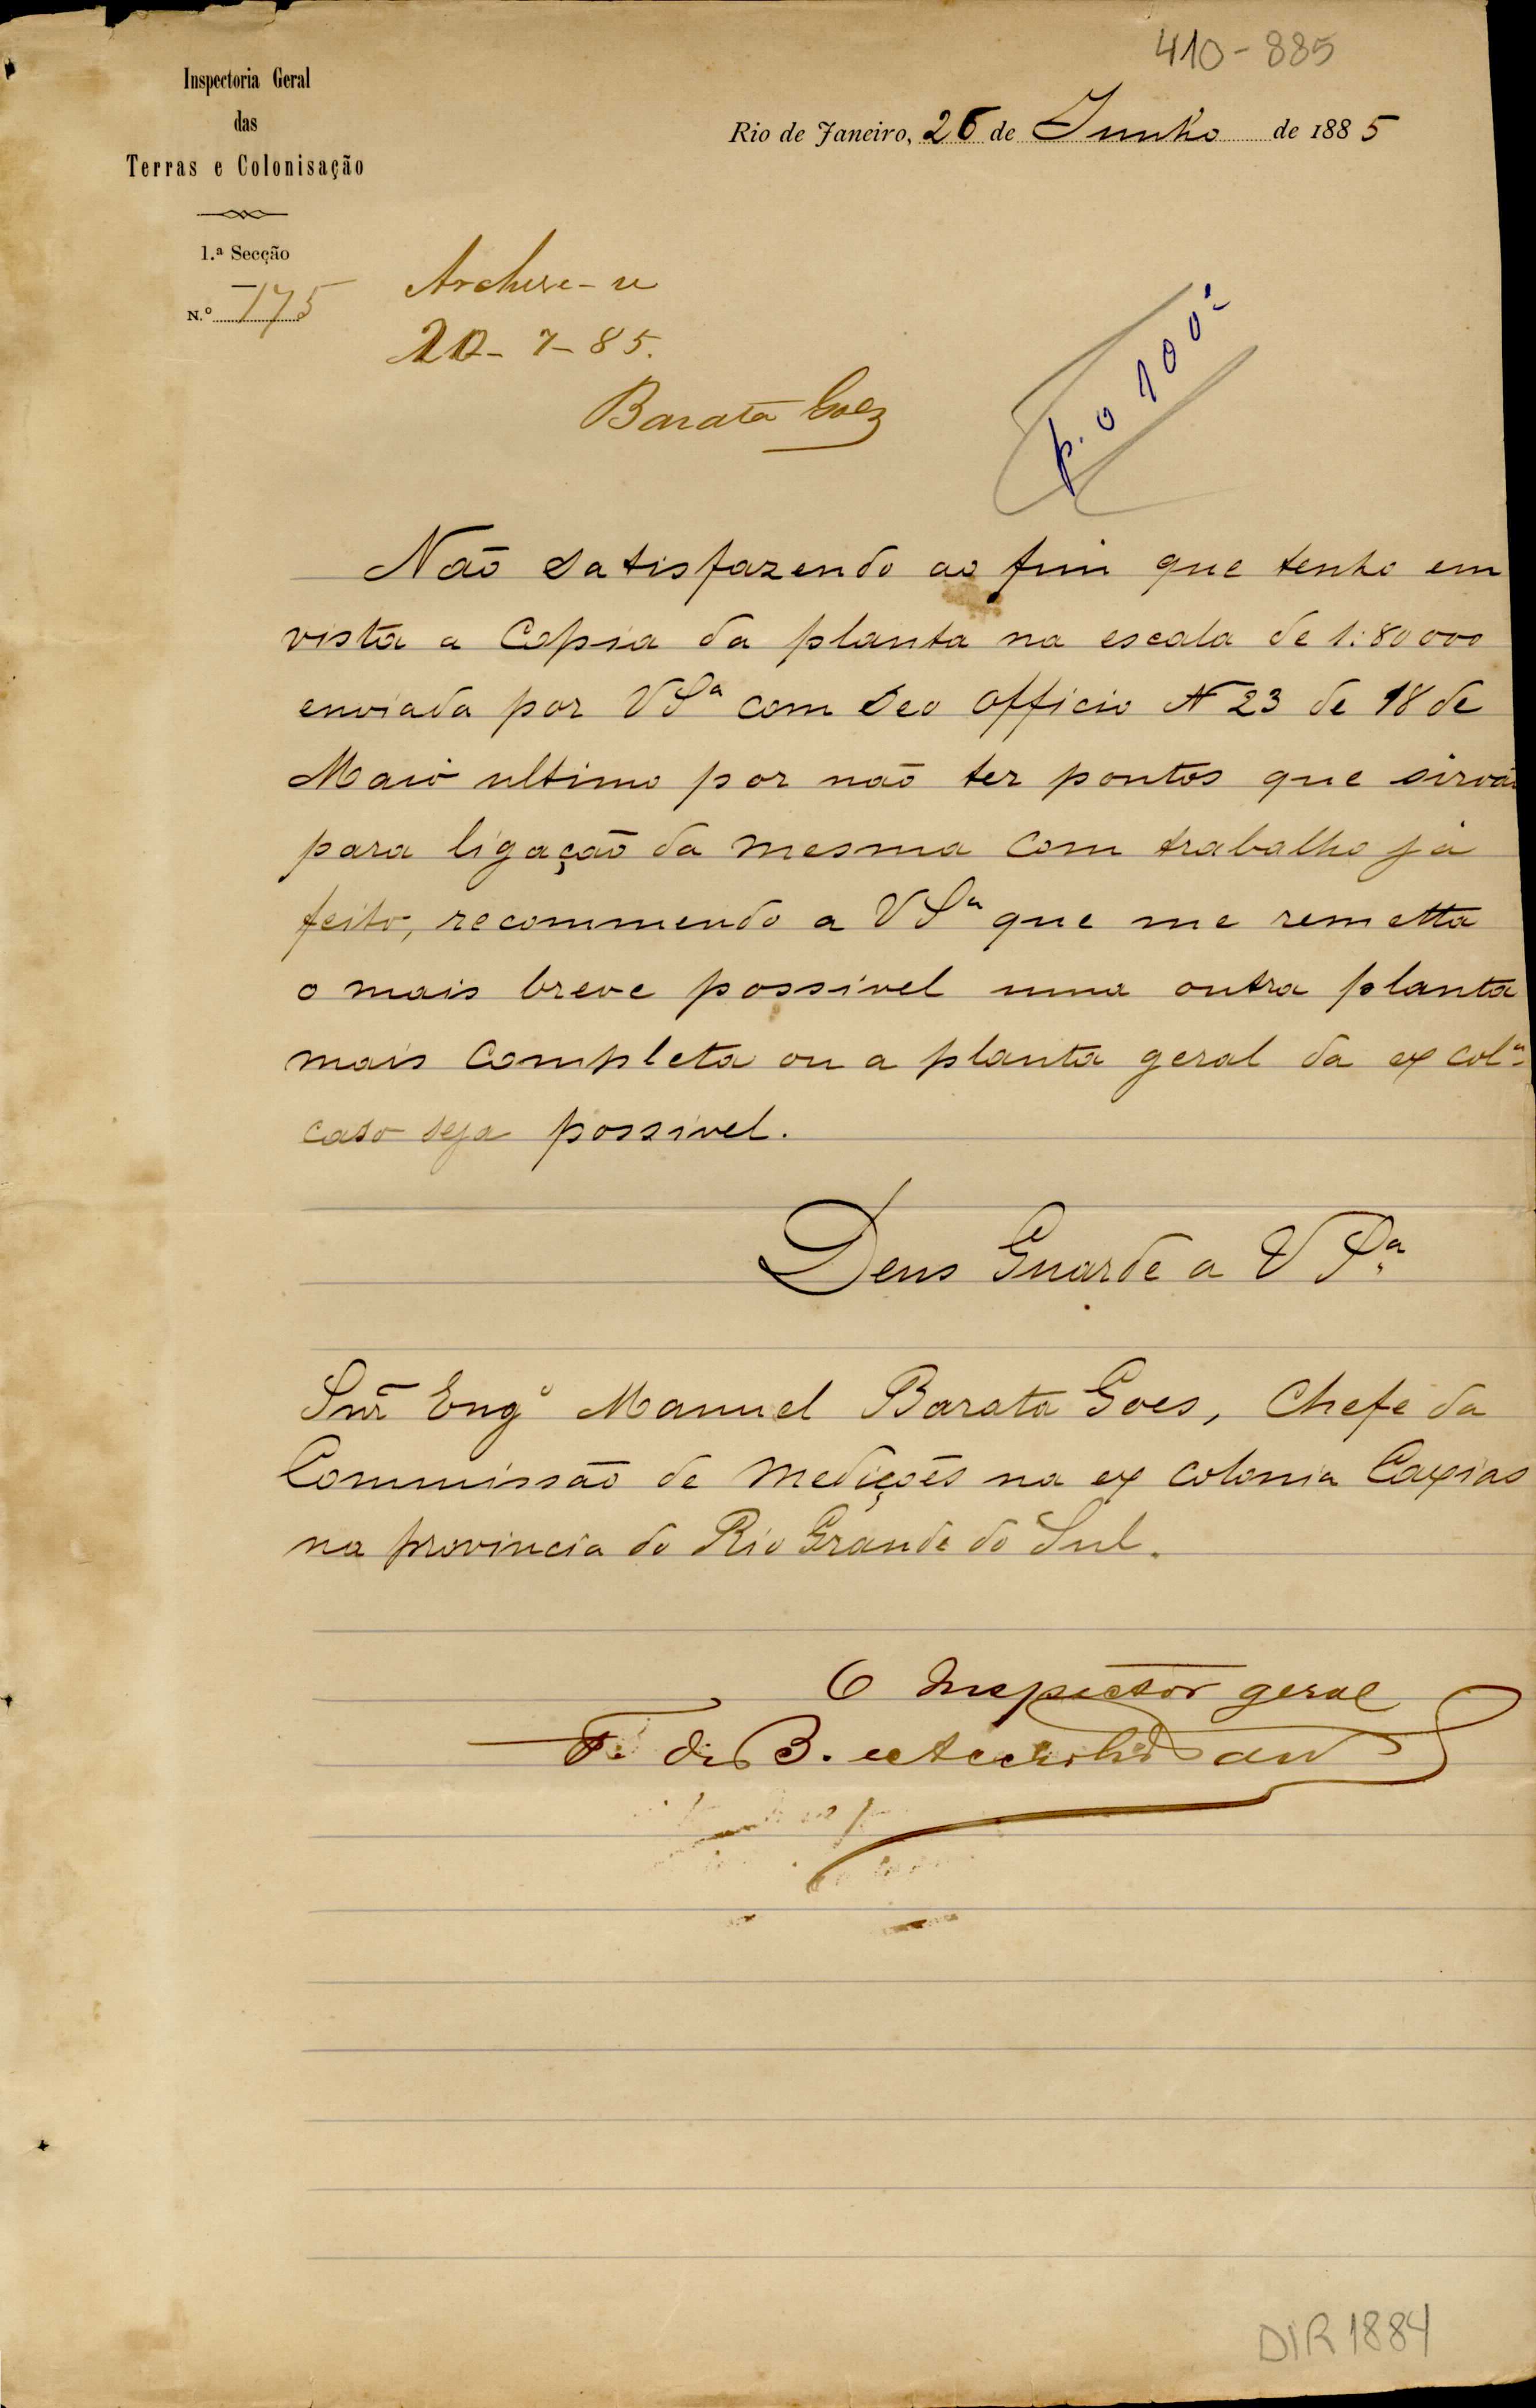 410-885
Inspectoria Geral
das
Terras e Colonisação
Rio de Janeiro, 26 de Junho de 1885
1.ª Secção
N.º 175
Archive-se
20-7-85.
Barata Goes
Não satisfazendo ao fim que tenho em
vista a copia da planta na escala de 1:80000
enviada por VSª com seo officio N 23 de 18 de
Maio ultimo por não ter pontos que sirvão
para ligação da mesma com trabalho já
feito, recommendo a VSª que me remetta
o mais breve possivel uma outra planta
mais completa ou a planta geral da ex colª
caso seja possivel.
Deus Guarde a VSª
Snr Engº Manuel Barata Goes, Chefe da
Commissão de Medições na ex colonia Caxias
na provincia do Rio Grande do Sul.
O Inspector geral
F. de B. e Accioli de
DIR 1884